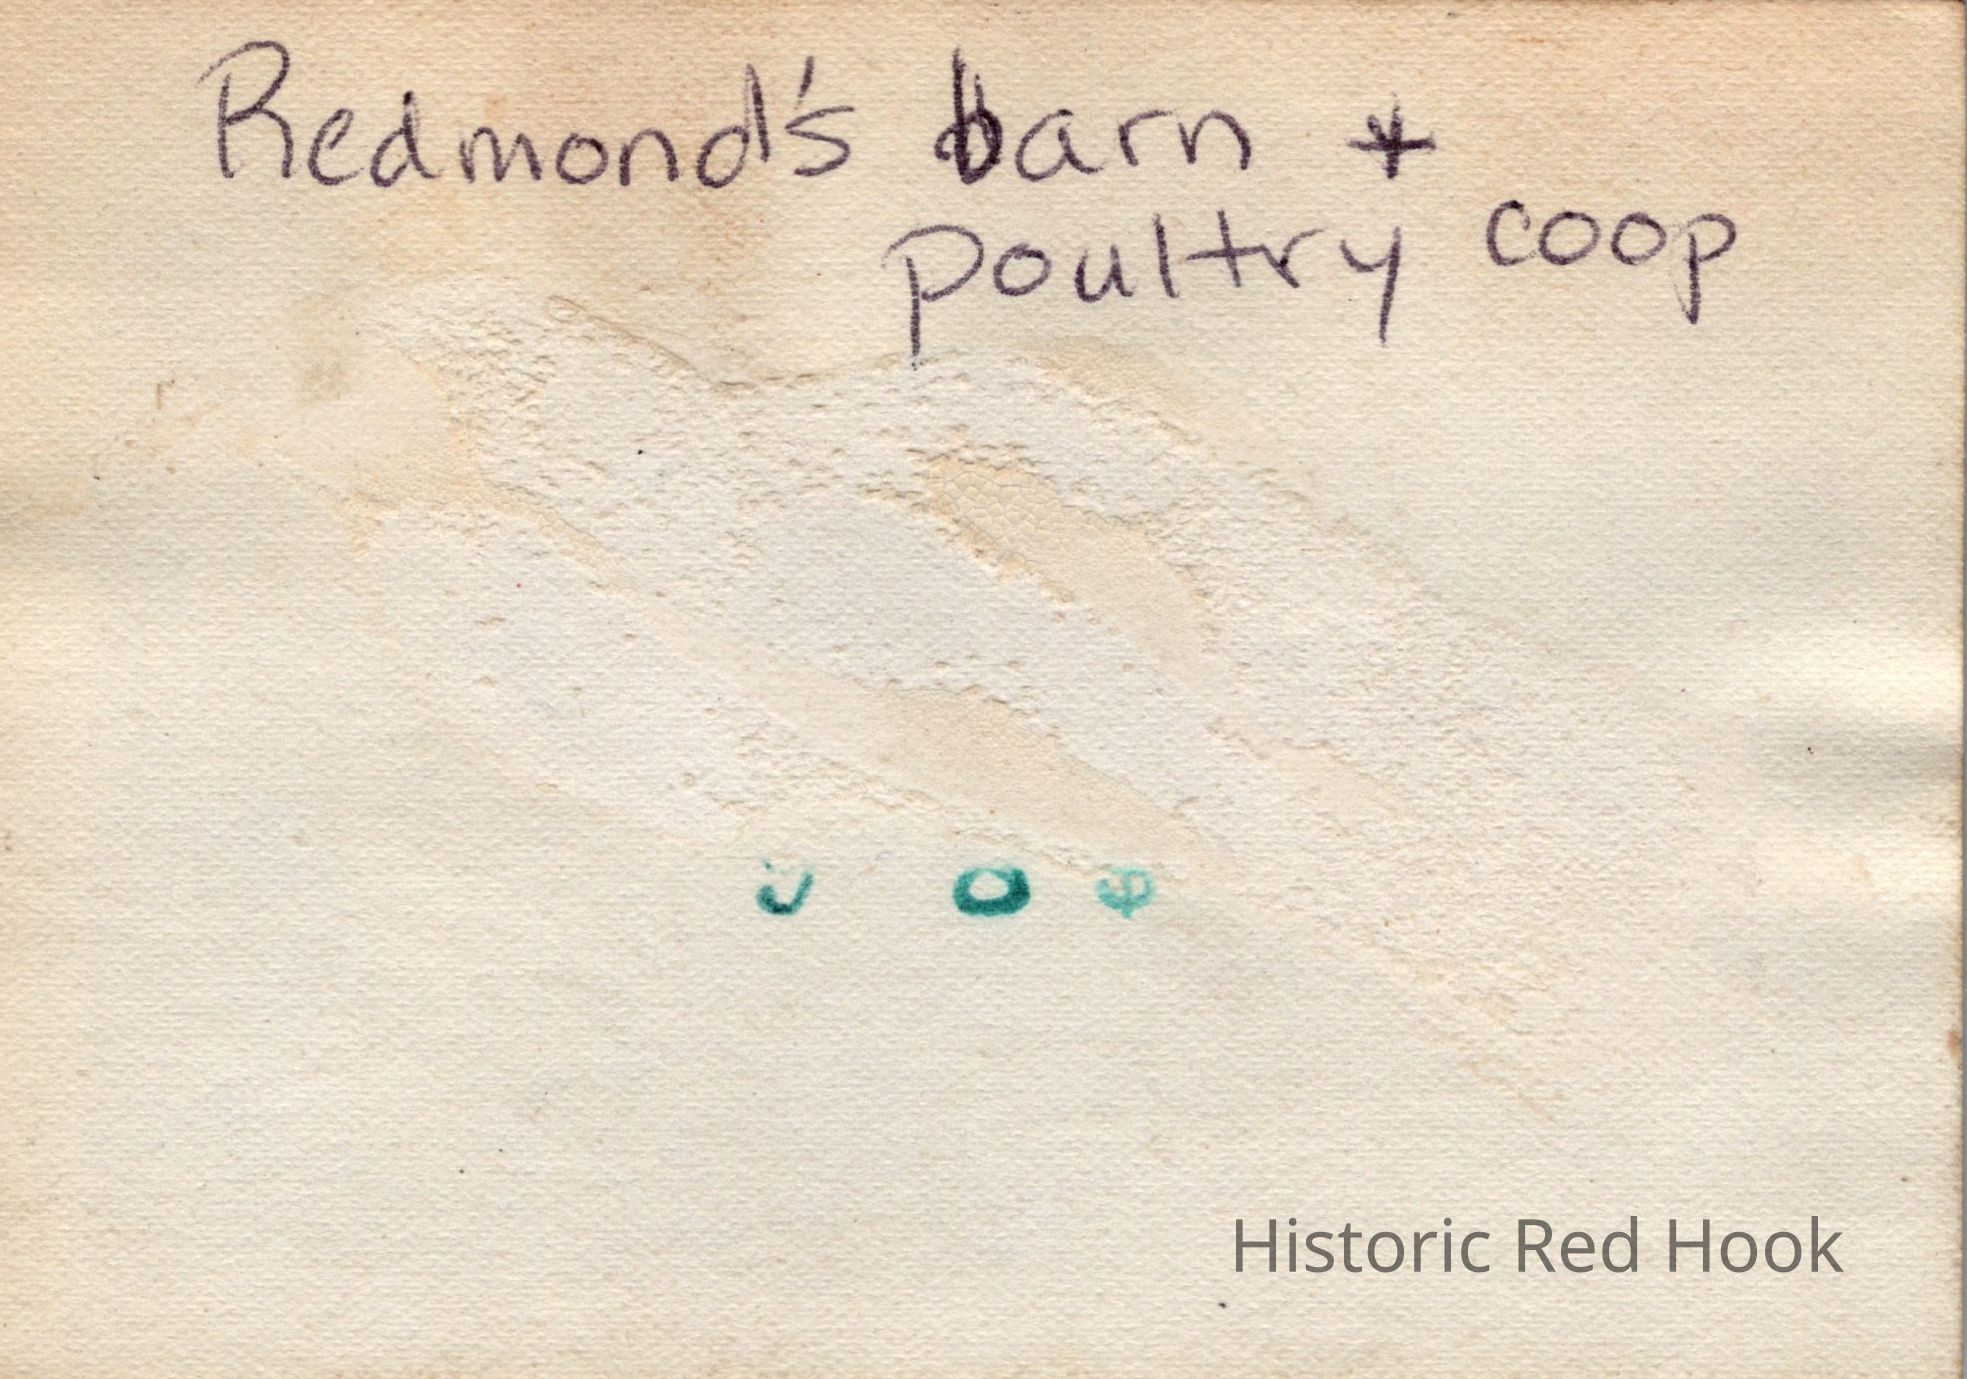 Redmond's barn +
poultry coop
Historic Red Hook